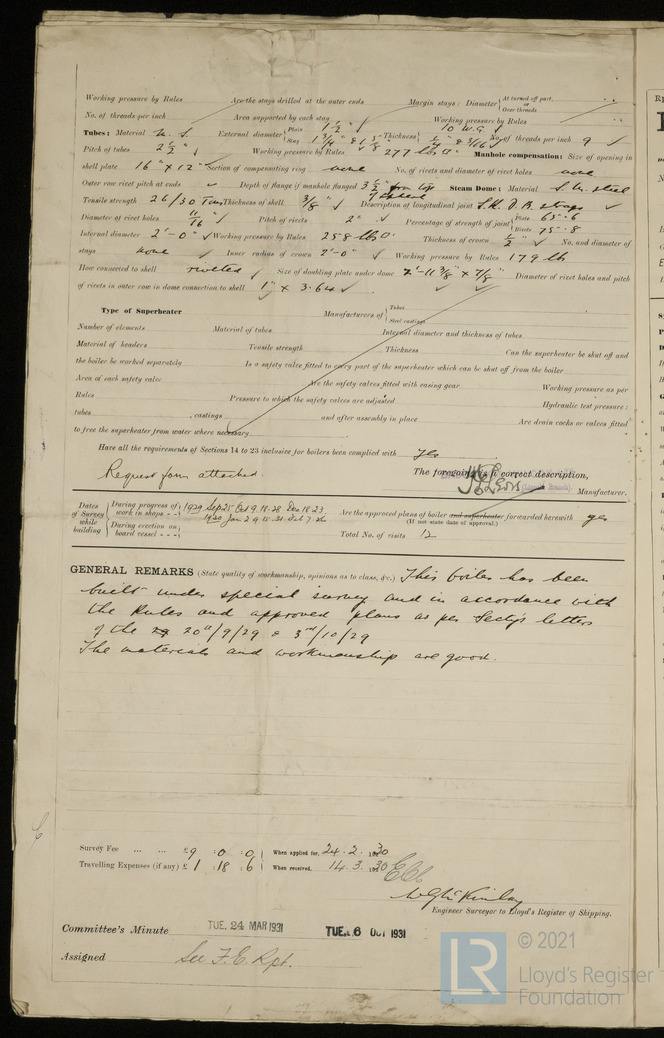 Working pressure by Rules Are the stays drilled at the outer ends Margin stays : Diameter { At turned off part, or Over threads
No. of threads per inch Area supported by each stay Working pressure by Rules
Tubes : Material W. S. External diameter { Plain 1 1/2" Stay 1 3/4" & 1 5/8" Thickness { 10 W.G. 1/4" & 3/16" No. of threads per inch 9
Pitch of tubes 2 1/2" Working pressure by Rules 277 lbs □" Manhole compensation : Size of opening in
shell plate 16" x 12" Section of compensating ring none No. of rivets and diameter of rivet holes none
Outer row rivet pitch at ends Depth of flange if manhole flanged 3 1/2" from top Steam Dome : Material S. M. steel
Tensile strength 26/30 Tons Thickness of shell 3/8" Description of longitudinal joint S.R. D.B. straps
Diameter of rivet holes 11/16" Pitch of rivets 2" Percentage of strength of joint { Plate 65.6 Rivets 75.8
Internal diameter 2'-0" Working pressure by Rules 258 lbs □" Thickness of crown 1/2" No. and diameter of
stays none Inner radius of crown 2'-0" Working pressure by Rules 179 lb
How connected to shell rivetted Size of doubling plate under dome 2'-11 3/8" x 7/8" Diameter of rivet holes and pitch
of rivets in outer row in dome connection to shell 1" x 3.64
Type of Superheater Manufacturers of { Tubes Steel castings
Number of elements Material of tubes Internal diameter and thickness of tubes
Material of headers Tensile strength Thickness Can the superheater be shut off and
the boiler be worked separately Is a safety valve fitted to every part of the superheater which can be shut off from the boiler
Area of each safety valve Are the safety valves fitted with easing gear Working pressure as per
Rules Pressure to which the safety valves are adjusted Hydraulic test pressure :
tubes , castings and after assembly in place Are drain cocks or valves fitted
to free the superheater from water where necessary
Have all the requirements of Sections 14 to 23 inclusive for boilers been complied with yes
Request form attached The foregoing is a correct description,
Manufacturer.
Dates of Survey while building { During progress of work in shops - - 1929 Sep 25 Oct 9. 18. 28 Dec 18. 23. 1930 Jan. 2. 9. 15. 31. Oct 7. 26
During erection on board vessel - - -
Are the approved plans of boiler and superheater forwarded herewith yes
(If not state date of approval.)
Total No. of visits 12
GENERAL REMARKS (State quality of workmanship, opinions as to class, &c.) This boiler has been
built under special survey and in accordance with
the Rules and approved plans as per Secty's letters
of the 20th/9/29 & 3rd/10/29
The materials and workmanship are good.
Survey Fee ... ... £ 9 : 0 : 0 When applied for, 24. 2. 1930
Travelling Expenses (if any) £ 1 : 18 : 6 When received, 14. 3. 1930
W G McKinlay
Engineer Surveyor to Lloyd's Register of Shipping.
Committee's Minute TUE. 24 MAR 1931 TUE. 6 OCT 1931
Assigned See F.E. Rpt.
LR © 2021
Lloyd's Register
Foundation